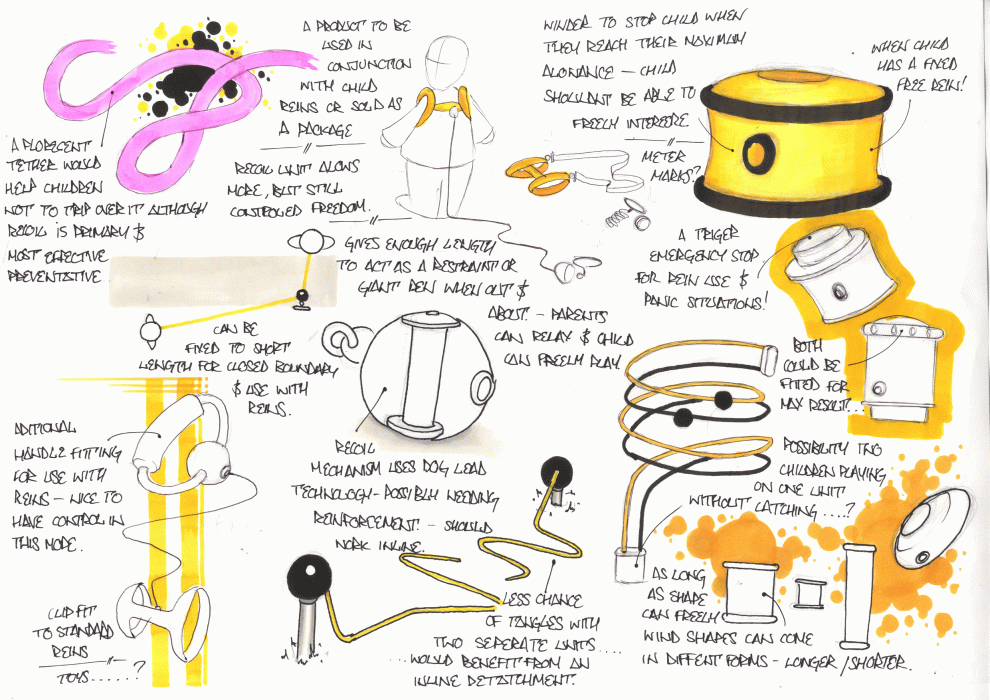 A PRODUCT TO BE
USED IN
CONJUNCTION
WITH CHILD
REINS OR SOLD AS
A PACKAGE
A FLORECENT
TETHER WOULD
HELP CHILDREN
NOT TO TRIP OVER IT ALTHOUGH
RECOIL IS PRIMARY &
MOST EFFECTIVE
PREVENTATIVE
RECOIL UNIT ALLOWS
MORE, BUT STILL
CONTROLED FREEDOM.
WINDER TO STOP CHILD WHEN
THEY REACH THEIR MAXIMUM
ALOWANCE - CHILD
SHOULDNT BE ABLE TO
FREELY INTERFERE
METER
MARKS?
WHEN CHILD
HAS A FIXED
FREE REIN!
GIVES ENOUGH LENGTH
TO ACT AS A RESTRAINT OR
GIANT PEN WHEN OUT &
ABOUT. - PARENTS
CAN RELAX & CHILD
CAN FREELY PLAY.
A TRIGER
EMERGENCY STOP
FOR REIN USE &
PANIC SITUATIONS!
CAN BE
FIXED TO SHORT
LENGTH FOR CLOSED BOUNDARY
& USE WITH
REINS.
BOTH
COULD BE
FITTED FOR
MAX RESULT...
ADITIONAL
HANDLE FITTING
FOR USE WITH
REINS - NICE TO
HAVE CONTROL IN
THIS MODE.
RECOIL
MECHANISM USES DOG LEAD
TECHNOLOGY - POSSIBLY NEEDING
REINFORCEMENT - SHOULD
WORK INLINE.
POSSIBILITY TWO
CHILDREN PLAYING
ON ONE UNIT
WITHOUT CATCHING ....?
CLIP FIT
TO STANDARD
REINS
TOYS......?
LESS CHANCE
OF TANGLES WITH
TWO SEPERATE UNITS ....
...WOULD BENEFIT FROM AN
INLINE DETATCHMENT.
AS LONG
AS SHAPE
CAN FREELY
WIND SHAPES CAN COME
IN DIFFENT FORMS - LONGER / SHORTER.